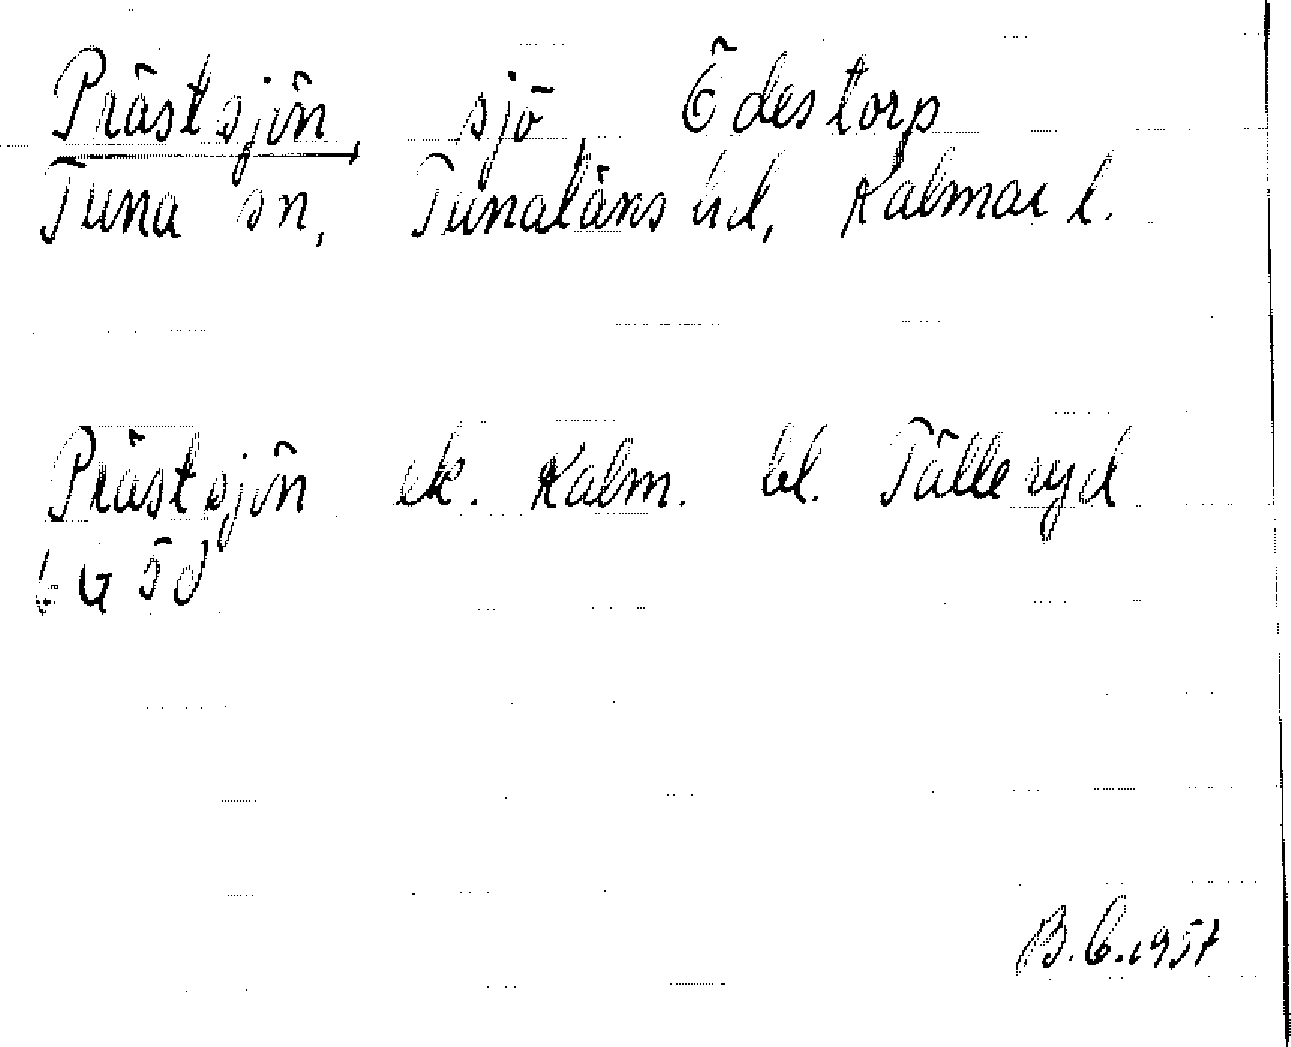 Prästsjön, sjö, Ödestorp
Tuna sn, Tunaläns hd, Kalmar l.
Prästsjön ek. Kalm. bl. Tålleryd
6G5d
B.C. 1957